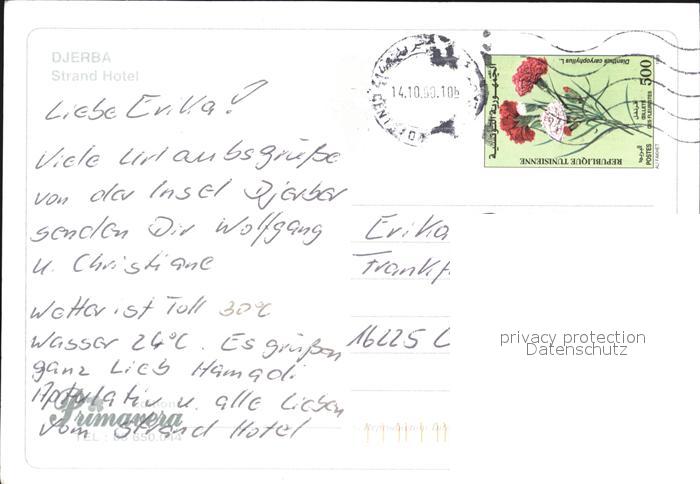 DJERBA
Strand Hotel
Liebe Erika!
Viele Urlaubsgrüße
von der Insel Djerber
senden Dir Wolfgang
u. Christiane
Wetter ist Toll 30°C
Wasser 24°C. Es grüßen
ganz Lieb Hamadi
u. alle Lieben
vom Strand Hotel
Primavera
TEL :
14.10.
Dianthus caryophyllus L.
500
الجمهورية التونسية
REPUBLIQUE TUNISIENNE
OEILLETS
DES FLEURISTES
POSTES
Erika
Frankf
16225
privacy protection
Datenschutz